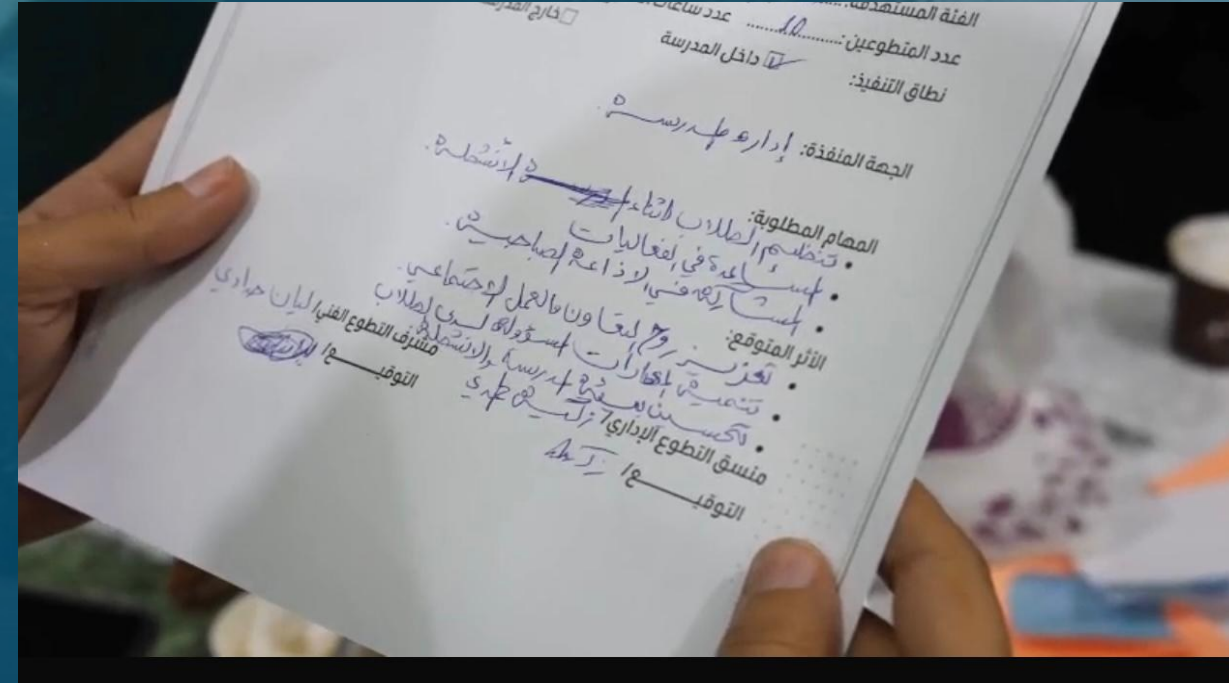 الفئة المستهدفة:
عدد المتطوعين: 10 عدد ساعات
نطاق التنفيذ: ☑ داخل المدرسة ☐ خارج المدرسة
الجهة المنفذة: إدارة المدرسة.
المهام المطلوبة:
• تنظيم الطلاب اثناء الأنشطة.
• المساعدة في الفعاليات
• المشاركة في الاذاعة الصباحية.
الأثر المتوقع:
• تعزيز روح التعاون والعمل الاجتماعي.
• تنمية المهارات المسؤولة لدى الطلاب
• تحسين بيئة المدرسة والانشطة.
منسق التطوع الإداري/ مشرف التطوع الفني/ اليان
التوقيـــع/ التوقيـــع/